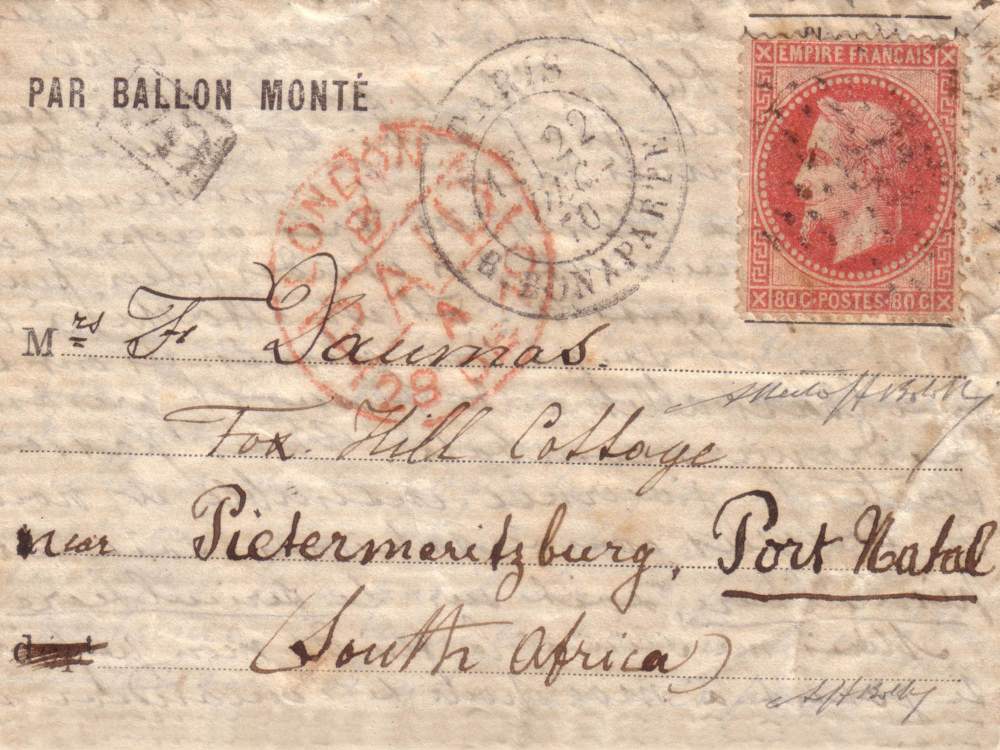 PAR BALLON MONTÉ
PD
PARIS
22
DEC.
70
R. BONAPARTE
LONDON
PAID
28
EMPIRE FRANÇAIS
80C·POSTES·80C
Mrs Fr Daumas.
Fox Hill Cottage
near Pietermeritzburg, Port Natal
(South Africa)